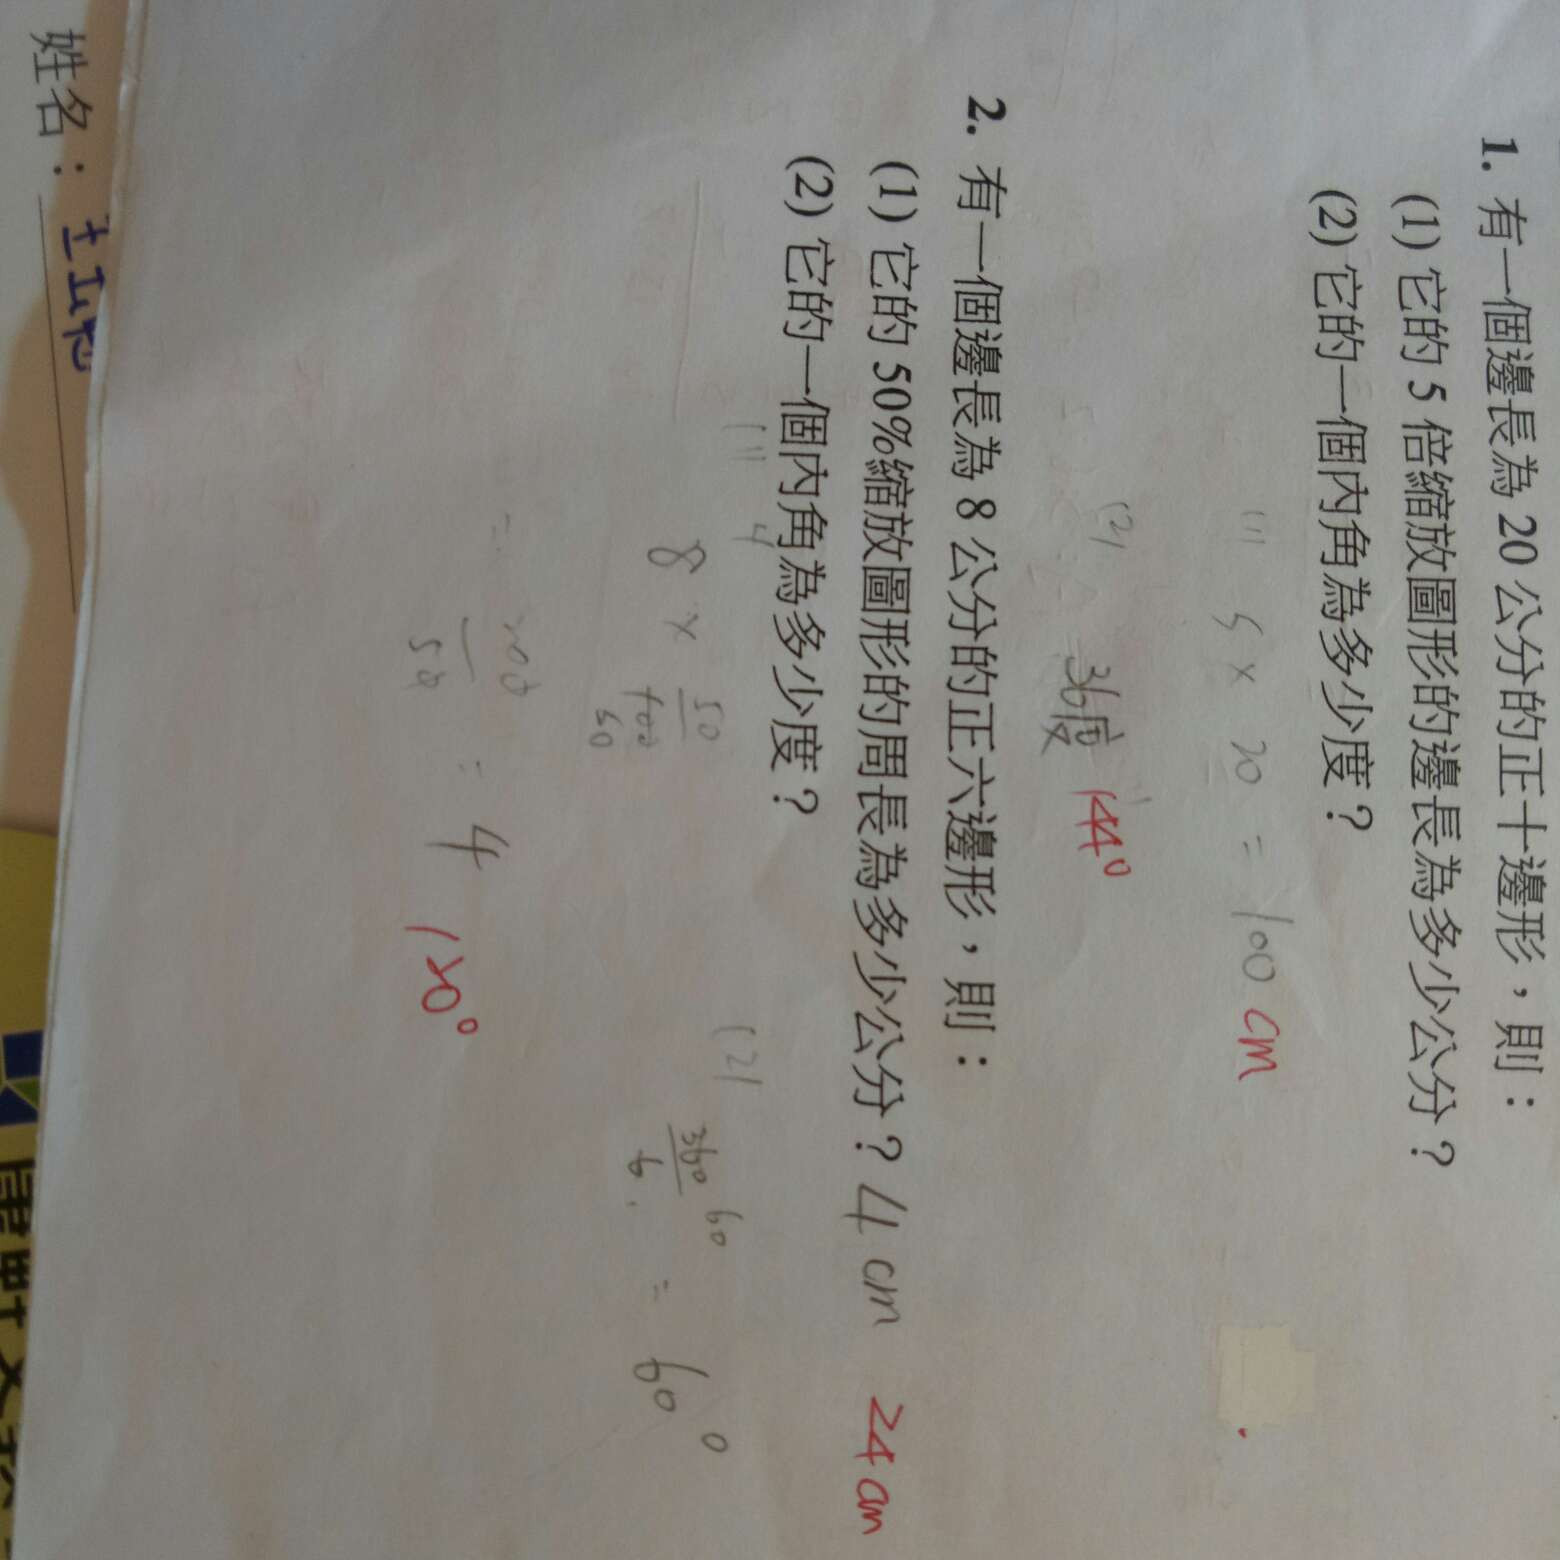 1. 有一個邊長為 20 公分的正十邊形，則：
(1) 它的 5 倍縮放圖形的邊長為多少公分？
(2) 它的一個內角為多少度？
(1) 5 × 20 = 100 cm
(2) 36度 144°
2. 有一個邊長為 8 公分的正六邊形，則：
(1) 它的 50%縮放圖形的周長為多少公分？ 4 cm 24 cm
(2) 它的一個內角為多少度？
(1)
4
8 × 50
100
50
= 200
50
= 4
120°
(2) 360 60
6
= 60°
姓名：